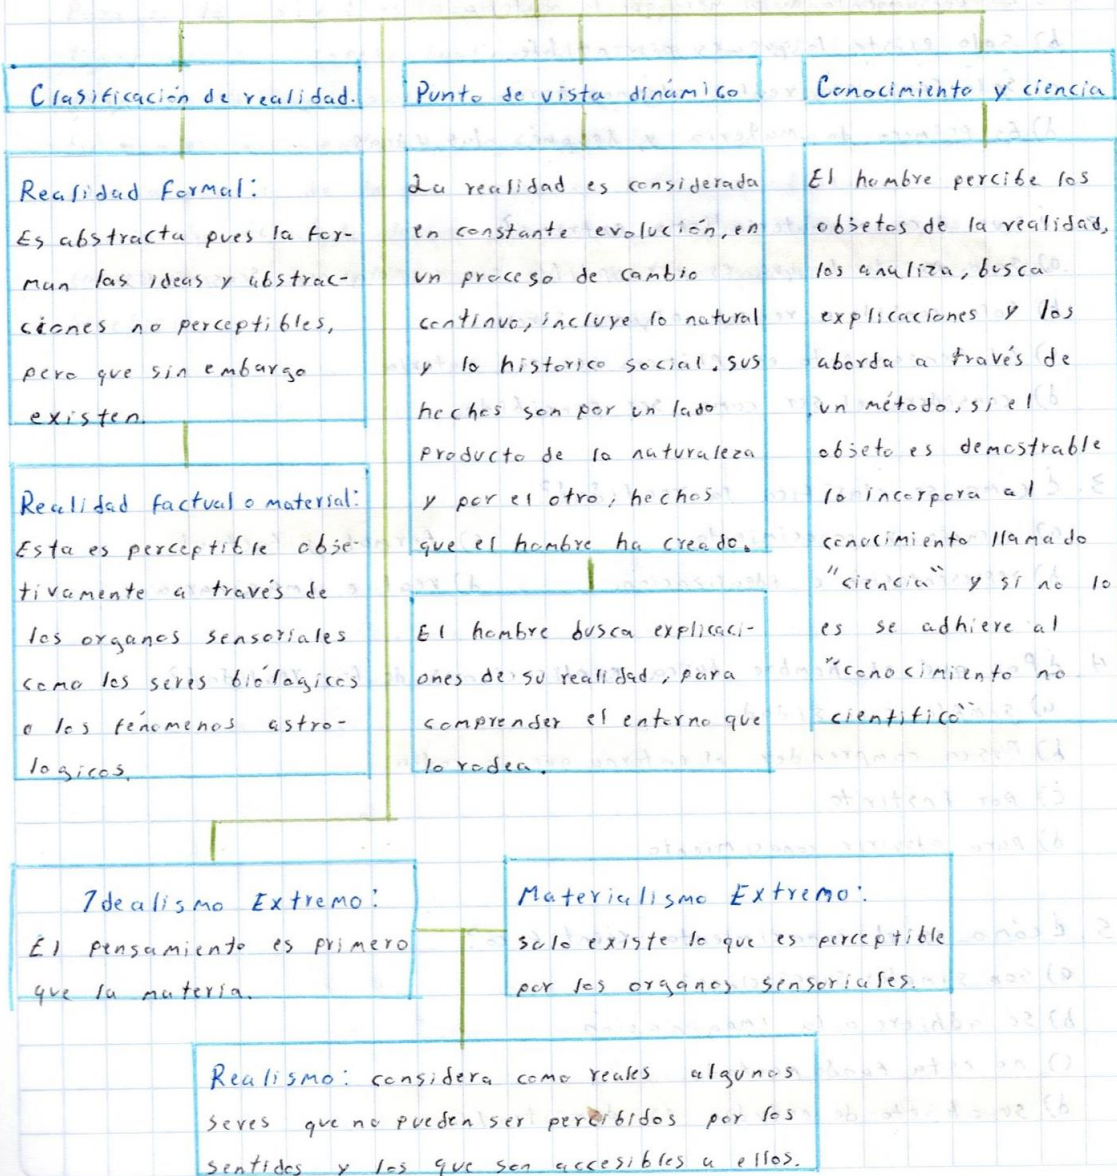 Clasificación de realidad.
Realidad formal:
Es abstracta pues la for-
man las ideas y abstrac-
ciones no perceptibles,
pero que sin embargo
existen.
Realidad factual o material:
Esta es perceptible obje-
tivamente a través de
los organos sensoriales
como los seres biólogicos
o los fenómenos astro-
logicos.
Punto de vista dinámico
La realidad es considerada
en constante evolución, en
un proceso de cambio
continuo, incluye lo natural
y lo historico social. sus
hechos son por un lado
producto de la naturaleza
y por el otro, hechos
que el hombre ha creado.
El hombre busca explicaci-
ones de su realidad, para
comprender el entorno que
lo rodea.
Conocimiento y ciencia
El hombre percibe los
objetos de la realidad,
los analiza, busca
explicaciones y los
aborda a través de
un método, si el
objeto es demostrable
lo incorpora al
conocimiento llamado
"ciencia" y si no lo
es se adhiere al
"conocimiento no
cientifico"
Idealismo Extremo:
El pensamiento es primero
que la materia.
Materialismo Extremo:
solo existe lo que es perceptible
por los organos sensoriales.
Realismo: considera como reales algunos
seres que no pueden ser percibidos por los
sentidos y los que son accesibles a ellos.